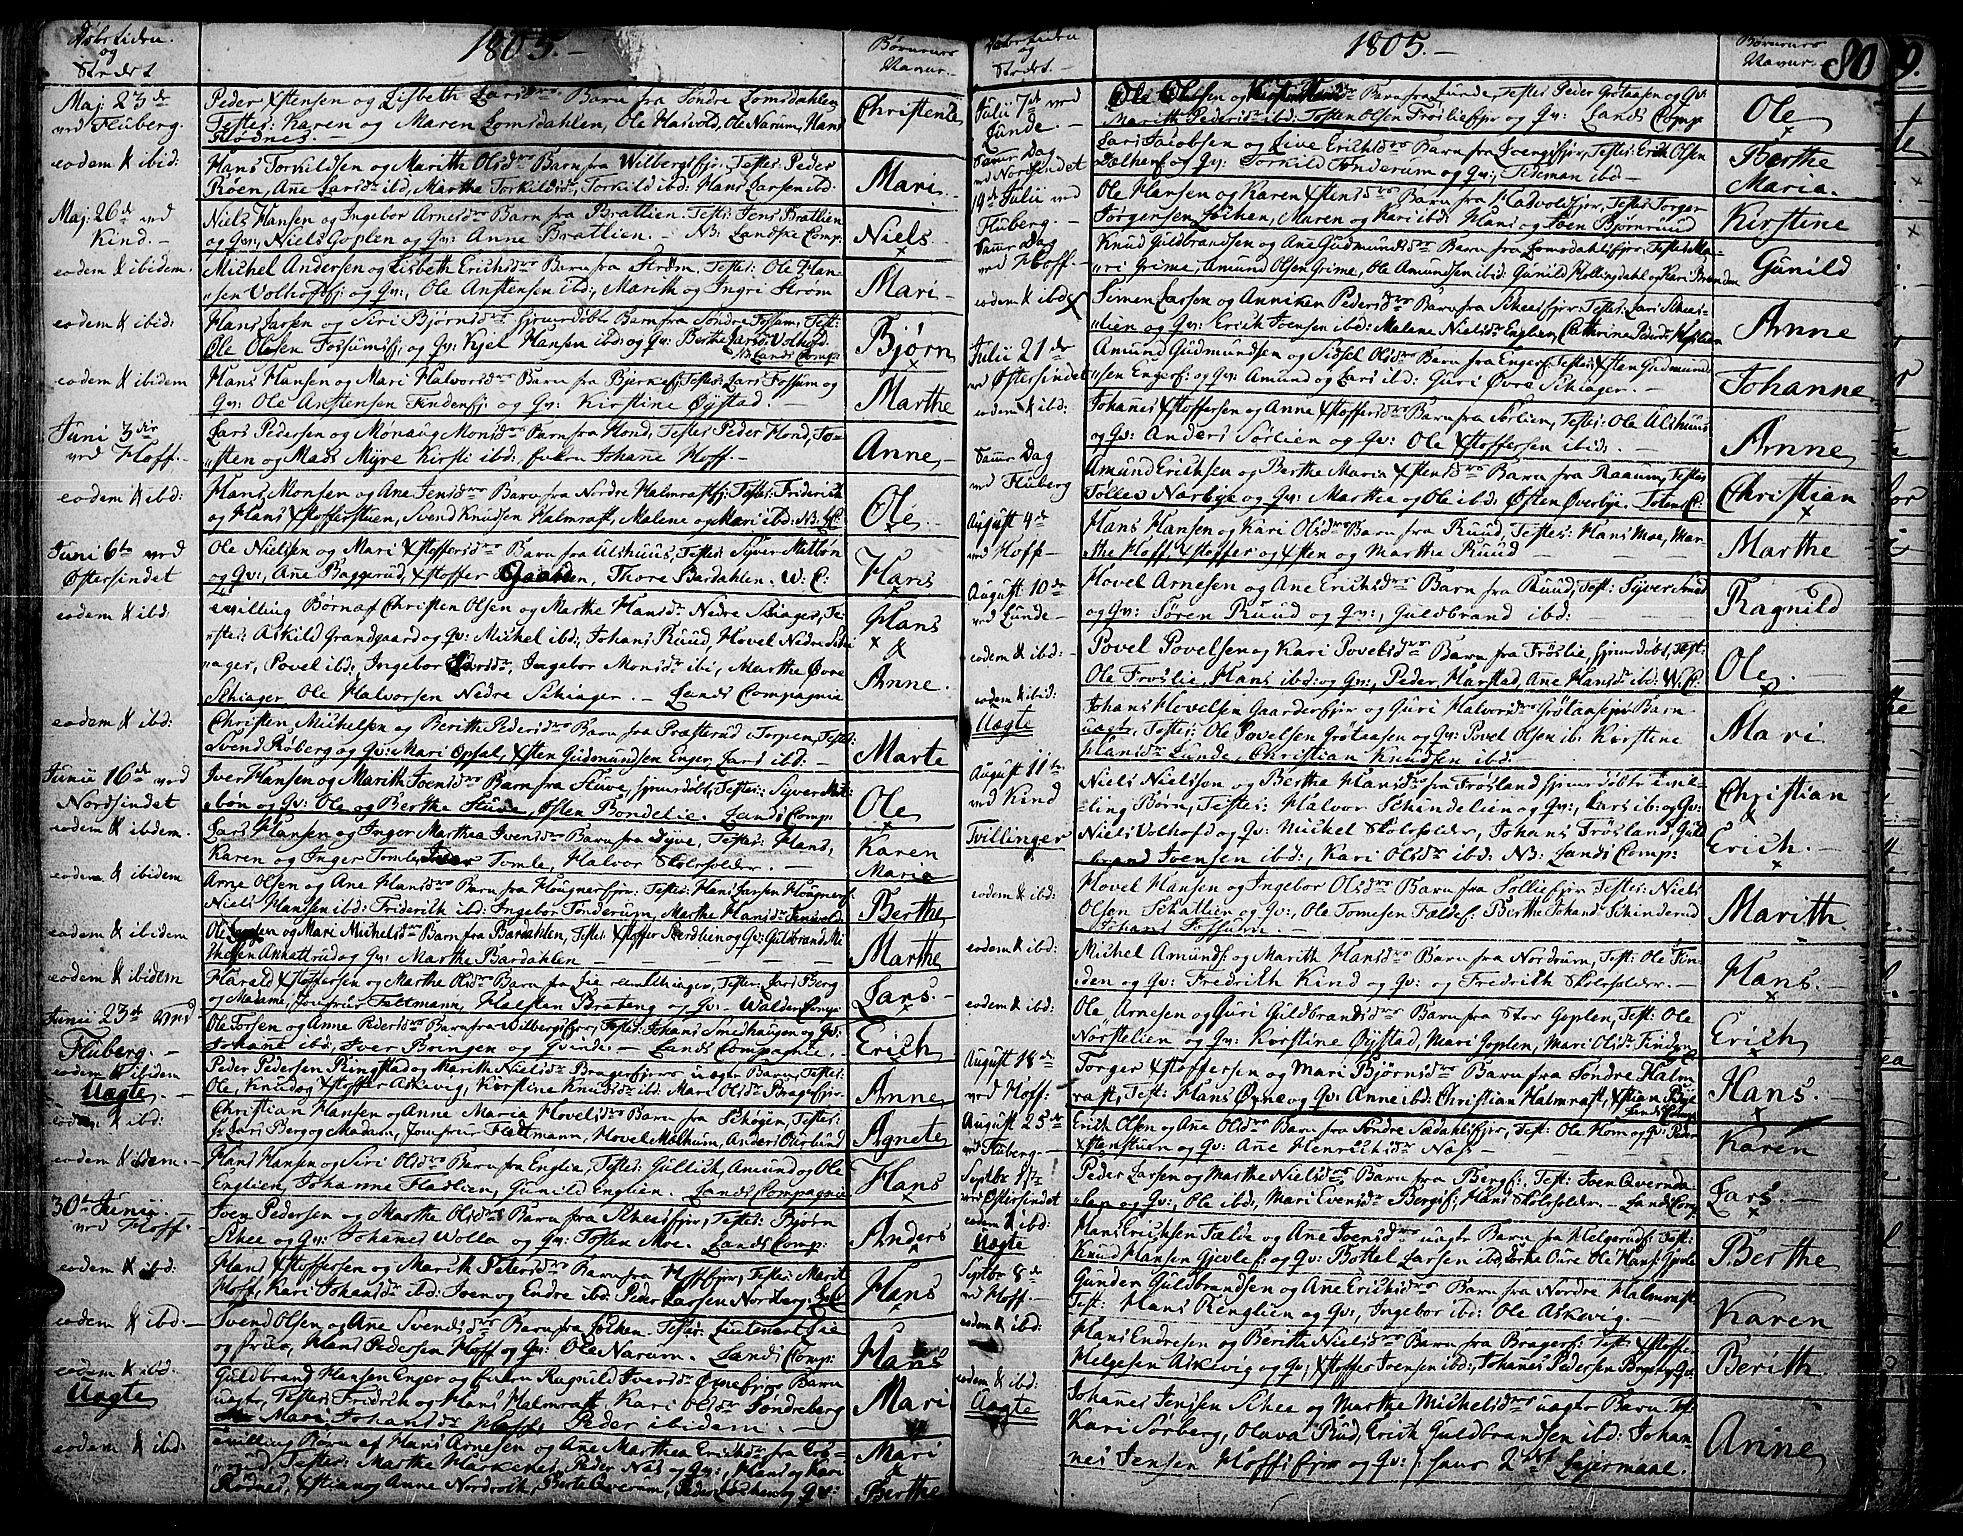 Døbetiden
og
Stedet
1805.
Børnenes
Navne.
Maj 23de
ved Fluberg.
Peder Xstensen og Lisbeth Larsdr Barn fra Søndre Lomsdahlen
Testes: Karen og Maren Lomsdahlen, Ole Hasvold, Ole Narum, Hans
Rødnes.
Christense
eodem & ibid:
Hans Torkildsen og Marithe Olsdr Barn fra Wilbergsejr: Testes: Peder
Røen, Ane Larsdr ibd, Marthe Torkildsdr, Torkild ibd: Hans Larsen ibd:
Mari
Maj: 26de ved
Kind.
Niels Hansen og Ingebor Arnesdr Barn fra Bratlien: Testes: Jens Bratlien
og Qv:, Niels Goplen og Qv: Anne Bratlien. NB: Landske Comp:
Niels
eodem & ibidem.
Michel Andersen og Lisbeth Erichsdr Barn fra Strøm. Testes: Ole Han-
sen Volhofsej: og Qv:, Ole Anstensen ibd:, Marith og Ingri Strøm
Mari
eodem & ibid:
Hans Larsen og Siri Bjørnsdr hjemedøbt Barn fra Søndre Fossum, Test:
Ole Olesen Fossumsej: og Qv: Kjel Hansen ibd: og Qv: Berthe Larsd: Volhofd
NB Lands Comp:
Bjørn
eodem & ibidem
Hans Hansen og Mari Halvorsdr Barn fra Bjerkesej: Testes: Lars Fossum og
Qv: Ole Anstensen Findensej: og Qv: Kirstine Øystad.
Marthe
Juni 3die
ved Hoff.
Lars Pedersen og Mønaug Monsdr Barn fra Hond, Testes Peder Hond, To-
sten og Mads Myre Kirsti ibd: Enken Johane Hoff
Anne
eodem & ibd:
Hans Monsen og Ane Jensdr Barn fra Nordre Halmrastej: Testes: Friderich
og Hans Xstofferstuen, Svend Knudsen Halmrast, Malene og Mari ibd: NB. LC:
Ole
Juni 6te ved
Østersindet
Ole Nielsen og Mari Xstoffersdr Barn fra Ulshuus, Testes: Syver Mitbøn
og Qv:, Ane Baggerud, Xstoffer Thore Bardahlen. W: C:
Hans
eodem & ibd:
Tvilling Børn af Christen Olsen og Marthe Hansdr Nedre Schiager, Te-
stes: Askild Grandgaard og Qv: Michel ibd: Johans Ruud, Hovel Nedre Schi-
ager, Povel ibd: Ingebor Larsdr, Ingebor Monsdr ibi, Marthe Øvre
Schiager, Ole Halvorsen Nedre Schiager. Lands Compagnie
Hans
&
Anne.
eodem & ibd:
Christen Michelsen og Berith Pedersdr Barn fra Præsterud i Torpen, Testes:
Svend Røberg og Qv: Mari Opsal, Xsten Gudmundsen Enger, Lars ibd:
Marte
Junii 16de ved
Nordsindet
Iver Hansen og Marith Joensdr Barn fra Stuve, hjemedøbt, Testes: Syver Mit-
bøn og Qv: Ole og Berthe Stuve, Østen Bondelie. Lands Comp:
Ole
eodem & ibdem.
Lars Hansen og Inger Marthea Ivensdr Barn fra Dyve, Testes: Hans,
Karen og Inger Tomle, Iver Tomle, Halvor Skolefolden.
Karen
Marie
eodem & ibidem
Arne Olsen og Ane Hansdr Barn fra Hougnersejr: Testes: Hans Larsen Hougners:
Niels Hansen ibd: Friderich ibd: Ingebor Tønderum, Marthe Hansdr
Berthe
eodem & ibidem
Ole og Mari Michelsdr Barn fra Bardahlen, Testes Xstoffer og Qv: Guldbrand Mi-
chelsen og Qv: Marthe Bardahlen
Marthe
eodem & ibidem
Harald Xstoffersen og Marthe Olsdr Barn fra Testes: Lars Berg
og Madame, Jomfrue Faltmann, Halsten Brateng og Qv: Walders Comp:
Lars.
Junii 23de ved
Fluberg.
Ole Torsen og Anne Pedersdr Barn fra Wilbergsejr, Testes: Johans Smedhaugen og Qv:
Johane ibd: Iver Bringen og Qvinde. Lands Compagnie.
Erich
eodem & ibidem
Uægte.
Peder Pedersen Ringstad og Marith Nielsdr Bragersejers uægte Barn, Testes:
Ole, Knud og Xstoffer Askevig, Kirstine Knudsdr ibd: Mari Olsdr Bragersejr.
Anne
eodem & ibd:
Christian Hansen og Anne Maria Hovelsdr Barn fra Schøyen, Testes:
Lars Berg og Madam, Jomfrue Faltmann, Hovel Melhuum, Anders Osterlund
Agnete
eodem & ibidem.
Hans Hansen og Siri Olsdr Barn fra Englie, Testes: Gullich, Amund og Ole
Englien, Johanne Fladlien, Gunild Englien. Lands Compagnie
Hans
30te Junii.
ved Hoff.
Joen Pedersen og Marthe Olsdr Barn fra Scheesejer, Testes: Bjørn
Schee og Qv: Johanes Wolla og Qv: Tosten Moe. Lands Comp:
Anders
eodem & ibd:
Hans Xstoffersen og Marith Petersdr Barn fra Hoffsejr, Testes: Marit
Hoff, Kari Johansdr ibd: Joen og Endre ibd: Peder Larsen Norberg.
Hans
eodem & ibd:
Svend Olsen og Ane Svendsdr Barn fra Løken. Testes: Lieutenant Lie
og Frue, Hans Pedersen Hoff og Qv: Ole Narum. Lands Comp:
Hans
eodem & ibd.
Uægte
Guldbrand Hansen Enger og Enken Ragnild Iversdr Øynesejer Barn
uægte, Testes: Fridrich og Hans Halmrast, Kari Olsdr Søndreberg
Mari Johansdr Hoff, Peder ibidem.
Mari
eodem & ibd:
Tvilling Børn af Hans Arnesen og Ane Marthea Erichsdr fra
Testes: Marthe Peder Næs og Qv:, Hans og Kari
Rødnes, Xstian og Anne Nordroth, Berte Qværum, Peder og Qv:
Mari
&
Berthe
Døbetiden
og
Stedet.
1805.
Børnenes
Navne.
80
9.
Julii 7de ved
Lunde.
Ole Olesen og Barn fra Lunde, Testes Peder Grøtaasen og Qv:
Marith Pedersdr ibid: Tosten Olsen Frøsliesejr og Qv: Lands Comp:
Ole
Same Dag
ved Nordsindet
Lars Jacobsen og Live Erichsdr Barn fra Loengsejer, Testes: Erich Olsen
Dalhens og Qv: Torkild Tønderum og Qv:, Tideman ibd
Berthe
Maria.
14de Julii ved
Fluberg.
Ole Hansen og Karen Xstensdr Barn fra Hadvoldsejr, Testes Torger
Jørgensen Løchen, Maren og Kari ibd: Hans og Joen Bjørnrud
Kirstine
Same Dag
ved Hoff.
Knud Guldbrandsen og Ane Gudmundsdr Barn fra Lomsdahlsejer, Testes Ma-
ri Grime, Amund Olsen Grime, Ole Amundsen ibid: Gunild Kollingdahl og Kari Branden
Gunild
eodem & ibd:
Simen Larsen og Anniken Pedersdr Barn fra Scheesejr, Testes: Lars Schees-
lien og Qv: Erich Joensen ibd: Malene Nielsdr Englien, Cathrina
Anne
Julii 21de
ved Østersindet
Amund Gudmundsen og Sidsel Olsdr Barn fra Engers: Testes: Xsten Gudmund-
sen Engers: og Qv: Amund og Lars ibd: Guri Øvre Schiager.
Johanne
eodem & ibd:
Johanes Xstoffersen og Anne Xstoffersdr Barn fra Sørlien, Testes: Ole Ulshuus
og Qv: Anders Sørlien og Qv: Ole Xstoffersen ibid:
Anne
Same Dag
ved Fluberg
Amund Erichsen og Berthe Maria Xstensdr Barn fra Raaum, Testes
Tolles Narbye og Qv: Marthe og Ole ibd: Østen Overbye. Toten C:
Christian
August 4de
ved Hoff
Hans Hansen og Kari Olsdr Barn fra Ruud, Testes: Hans Moe, Mar-
the Hoff Xstoffer og Xsten og Marthe Ruud
Marthe
August 10de
ved Lunde
Hovel Arnesen og Ane Erichsdr Barn fra Ruud, Test: Syver Lund
og Qv: Søren Ruud og Qv:, Guldbrand ibd:
Ragnild
eodem & ibd:
Povel Povelsen og Kari Povelsdr Barn fra Frøslie, hjemedøbt, Test:
Ole Frøslie, Hans ibd: og Qv:, Peder, Harstad, Ane Hansdr ibd: W.C:
Ole
eodem & ibid:
Uægte
Johans Hovelsen Gaardersejer og Guri Halvorsdr Grøtaasejer Barn
uægte, Testes: Ole Povelsen Grøtaasen og Qv: Povel Olsen ib: Kirstine
Hansdr Lunde, Christian Knudsen ibd:
Mari
August 11te
ved Kind
Tvillinger
Niels Nielsen og Berthe Hansdr fra Frøsland hjemedøbte Tvil-
ling Børn, Testes: Halvor Schindelien og Qv:, Lars ib: og Qv:
Niels Volhofd og Qv: Michel Skolefolden, Johans Frøsland, Guld-
brand Joensen ibd:, Kari Olsdr ibd: NB: Lands Comp:
Christian
Erich.
eodem & ibd:
Hovel Hansen og Ingebor Olsdr Barn fra Solliesejr Testes: Niels
Olsen Schatlien og Qv:, Ole Tomesen Fælde: Berthe Johand: Schinderud
Johans Fossum.
Marith
eodem & ibd:
Michel Amunds: og Marith Hansdr Barn fra Nordrum, Test: Ole Fin-
den og Qv: Fredrich Kind og Qv: og Fredrich Skolefolden.
Hans.
eodem & ibd:
Ole Arnesen og Guri Guldbrandsdr Barn fra Stor Goplen, Test: Ole
Norstelien og Qv: Kirstine Øystad, Mari Goplen, Mari Olsdr Finden
Erich
August 18de
ved Hoff:
Torger Xstoffersen og Mari Bjørnsdr Barn fra Søndre Halm-
rast, Test: Hans Øyne og Qv: Ane ibd: Christian Halmrast, Xstian
Lands Comp:
Hans.
August 25de
ved Fluberg.
Erich Olsen og Ane Olsdr Barn fra Nordre Sædahlsejer, Test: Ole Hom og Qv: Peder
Xstenstuen og Qv: Ane Henrichsdr Næss
Karen
Septbr 1ste
ved Østersindet
Peder Larsen og Marthe Nielsdr Barn fra Bergs: Test: Joen Qvernda-
len og Qv:, Ole ibd:, Mari Evensdr Bergs: Hans Skolefolden. Lands Comp
Lars.
eodem & ibd:
Uægte
Hans Erichsen Fælde og Ane Joensdr uægte Barn fra Helgeruds: Test:
Knud Hansen Gjevles: og Qv: Bottel Larsen ibd: Ole Hans: Gjevle
Berthe
Septbr 8de
ved Hoff
Gunder Guldbrandsen og Ane Erichsdr Barn fra Nordre Halmrast
Test: Hans Ringlien og Qv:, Ingebor ibd: Ole Askevig.
Karen
eodem & ibd:
Hans Endresen og Berithe Nielsdr Barn fra Bragers: Test: Xstoffer
Helgesen Askevig og Qv: Xstoffer Iversen ibd:, Johanes Pedersen Brager og Qv:
Berith
eodem & ibd:
Uægte
Johanes Jensen Schee og Marthe Michelsdr uægte Barn, Test:
Kari Sørberg, Olava Rud, Erich Guldbrandsen ibd: Johan-
nes Jensen Hoffsejer og Qv: / faur 2det Leiermaal.
Anne